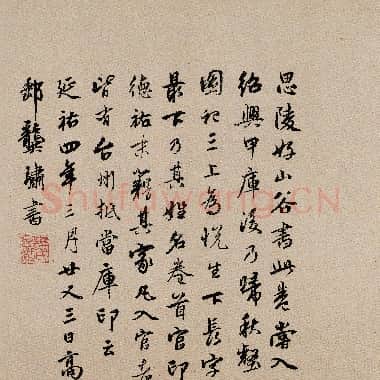 思陵好山谷書此卷嘗入
紹興甲庫後乃歸秋壑
圖記三上為悅生下長字
最下乃其姓名卷首官印
德祐末籍其家凡入官者
皆有台州抵當庫印云
延祐四年三月廿又三日高
郵龔璛書
Shufawang.CN